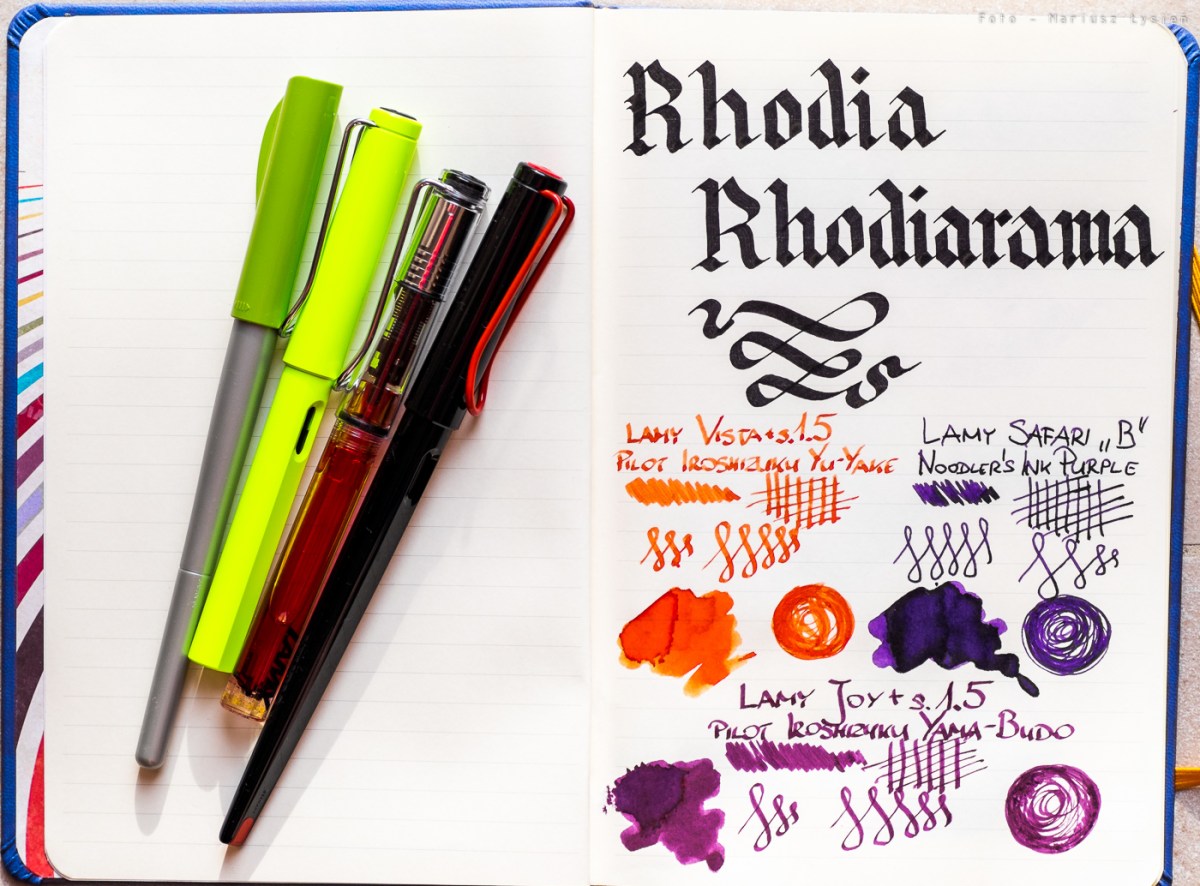 Foto - Mariusz Lysian
Rhodia
Rhodiarama
LAMY VISTA + s. 1.5
PILOT IROSHIZUKU YU-YAKE
LAMY SAFARI „B"
NOODLER'S INK PURPLE
LAMY JOY + s. 1.5
PILOT IROSHIZUKU YAMA-BUDO
LAMY